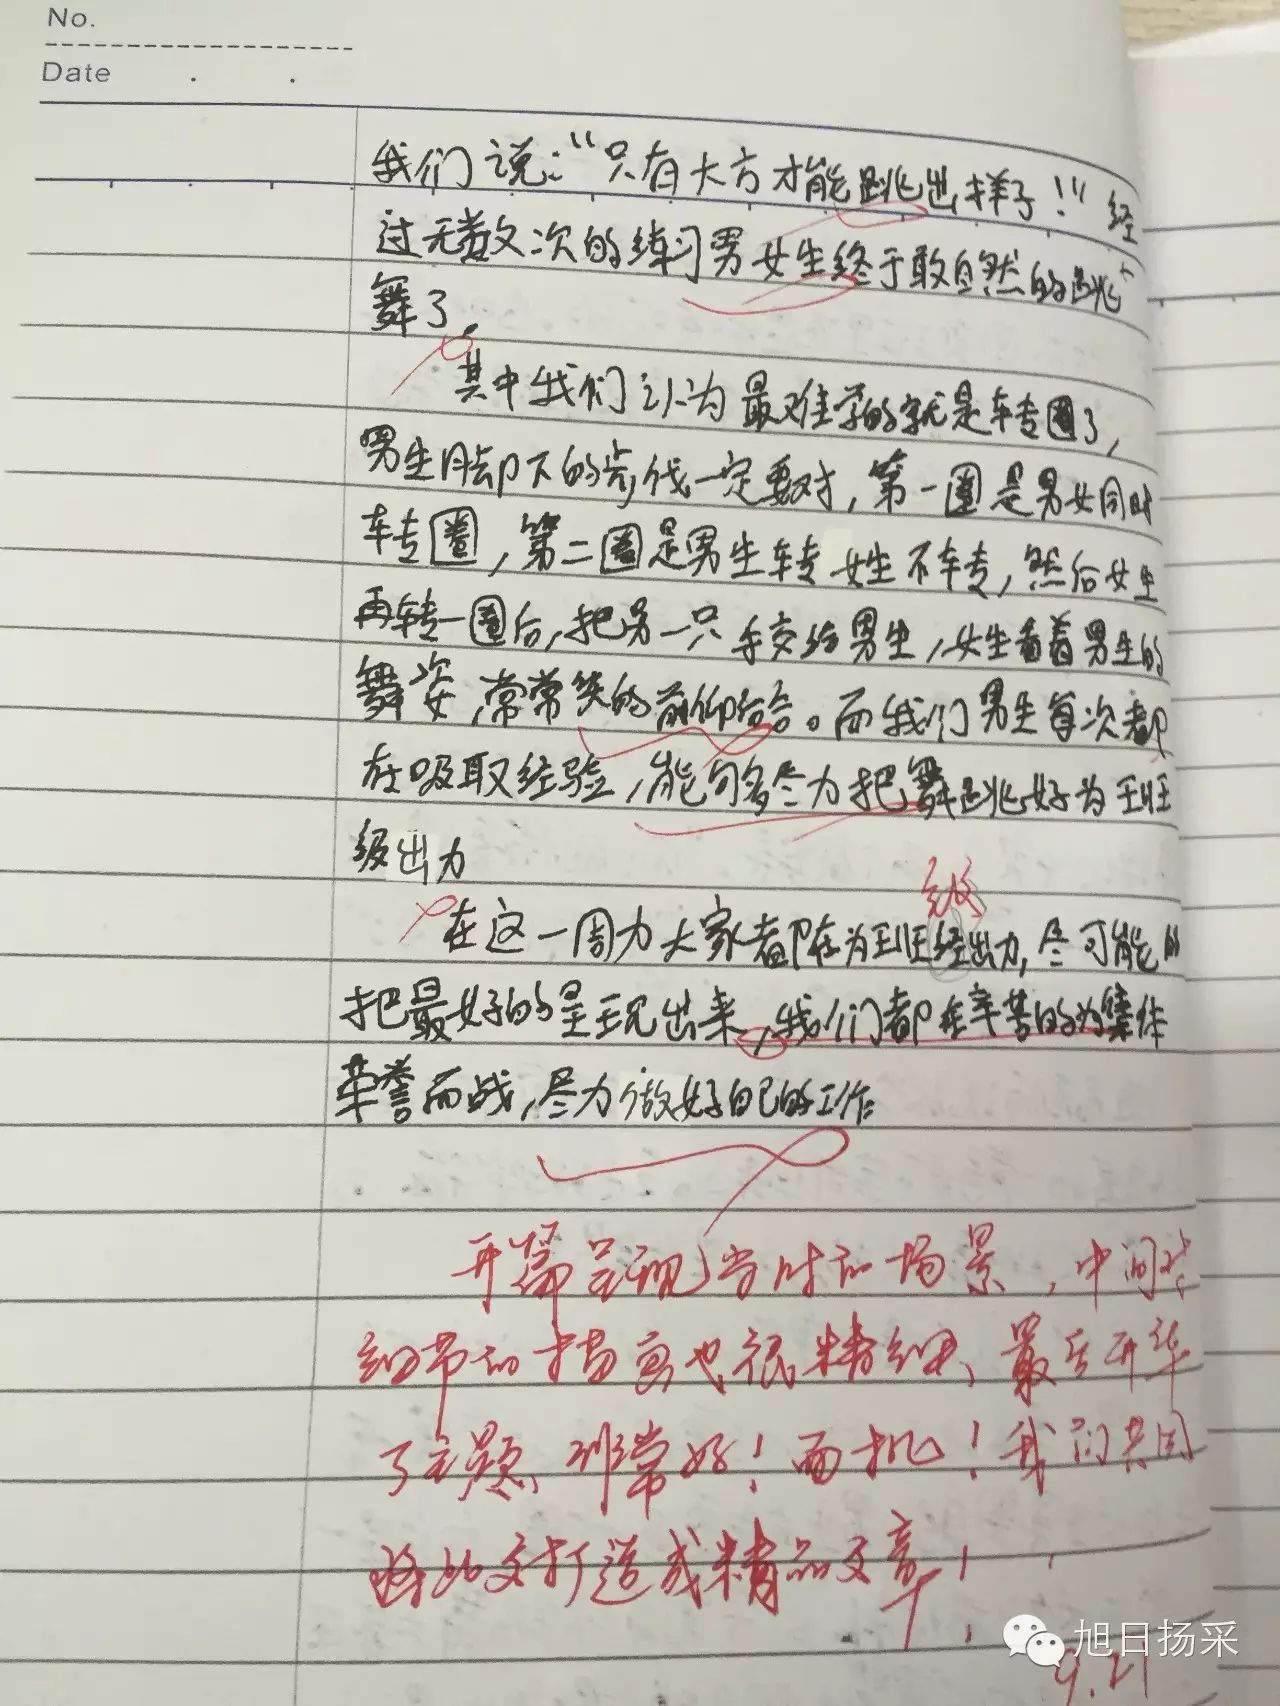 No.
Date
我们说:“只有大方才能跳出样子!”经
过无数次的练习男女生终于敢自然的跳
舞了。
其中我们认为最难学的就是转圈了,
男生脚下的步伐一定要对,第一圈是男女同时
转圈,第二圈是男生转女生不转,然后女生
再转一圈后,把另一只手交给男生,女生看着男生的
舞姿,常常笑的前仰后合。而我们男生每次都
在吸取经验,能够多尽力把舞跳好为班
级出力
在这一周为大家都在为班级出力,尽可能的
把最好的呈现出来,我们都在辛苦的为集体
荣誉而战,尽力做好自己的工作
开篇呈现当时的场景,中间对
细节的描写也很精细、最后升华
了主题、非常好!面批!我们共同
将此文打造成精品文章!
9.21
旭日扬采